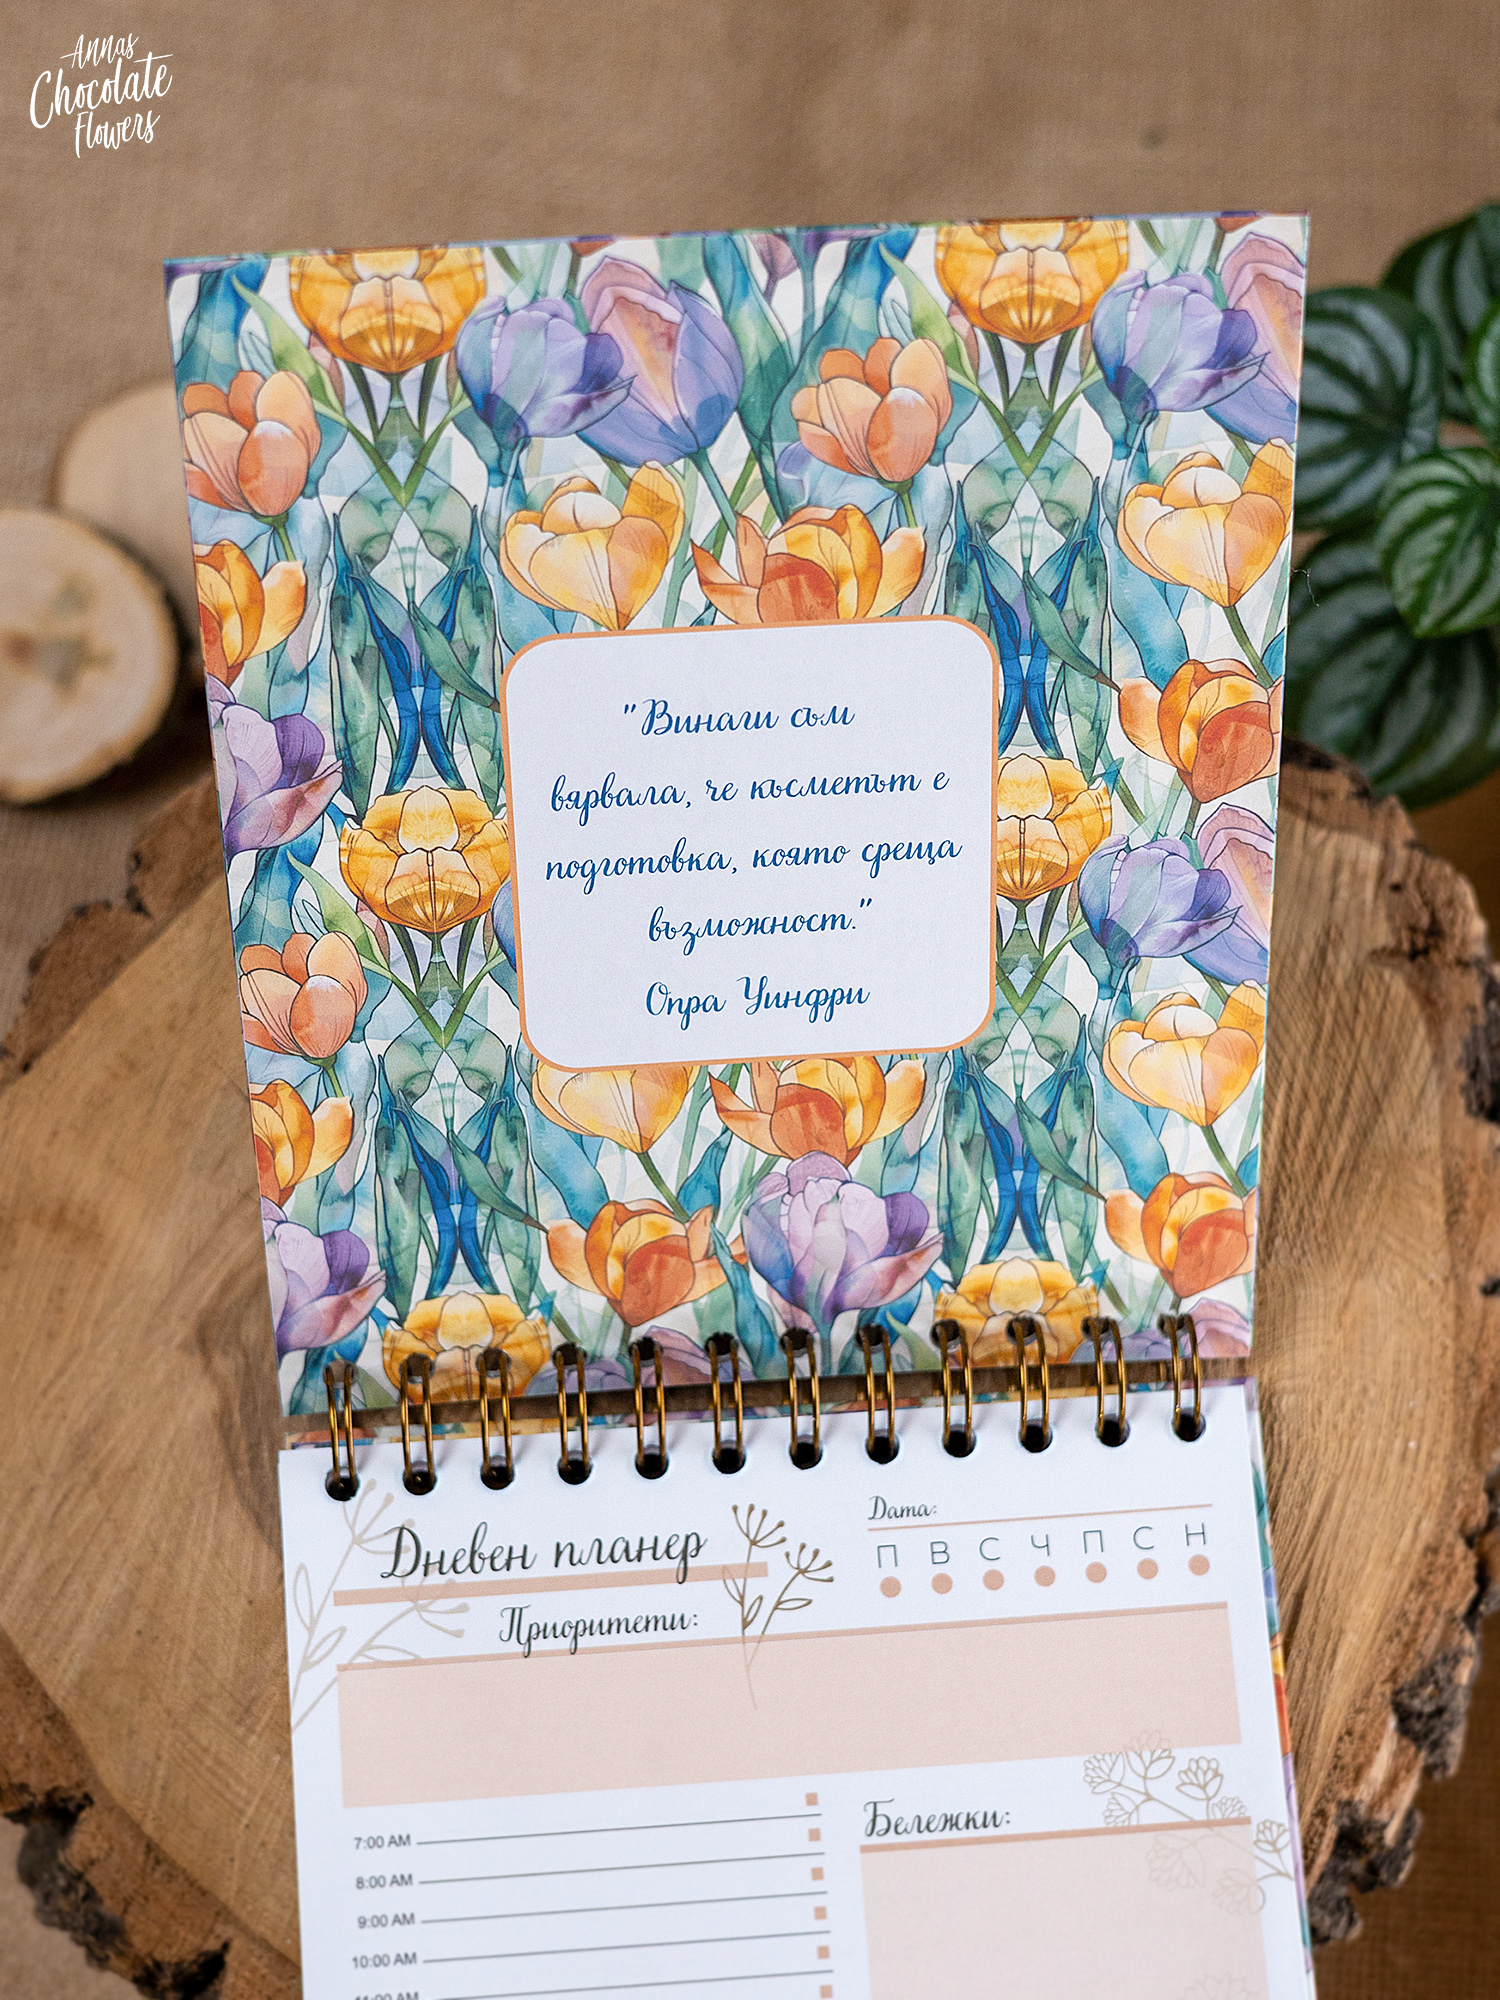 Annas
Chocolate
Flowers
"Винаги съм
вярвала, че късметът е
подготовка, която среща
възможност."
Опра Уинфри
Дневен планер
Дата:
П В С Ч П С Н
Приоритети:
7:00 AM
8:00 AM
9:00 AM
10:00 AM
11:00 AM
Бележки: